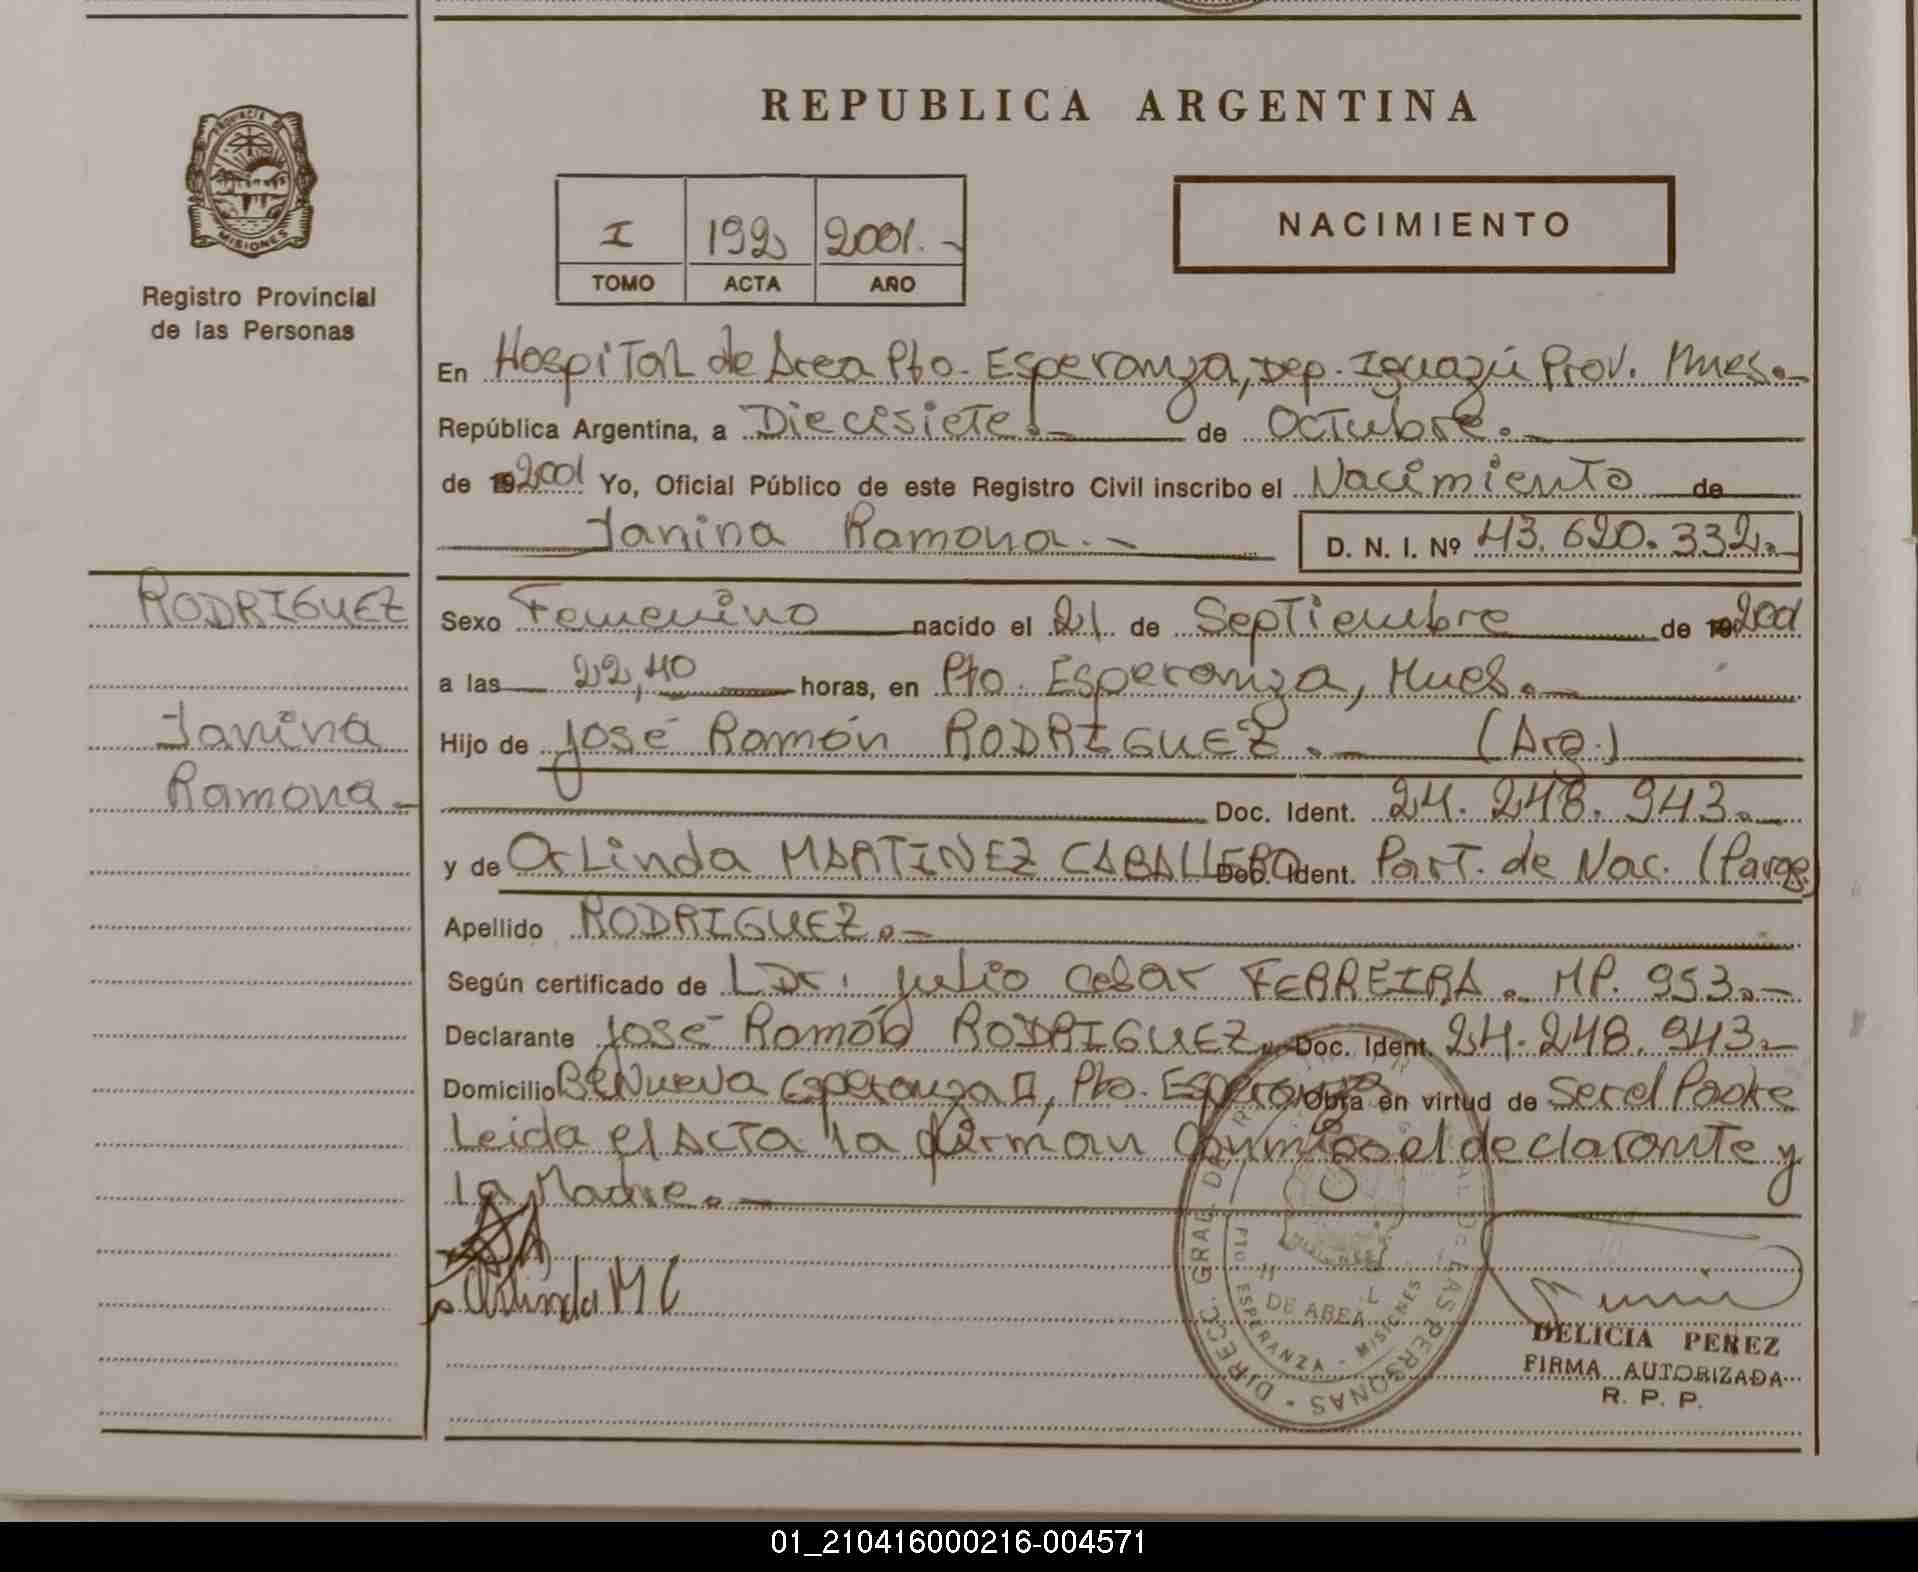 REPUBLICA ARGENTINA
PROVINCIA DE
MISIONES
Registro Provincial
de las Personas
I 192 2001.-
TOMO ACTA AÑO
NACIMIENTO
En Hospital de Area Pto. Esperanza, Dep. Iguazú Prov. Mnes.-
República Argentina, a Diecisiete.- de Octubre.-
de 192001 Yo, Oficial Público de este Registro Civil inscribo el Nacimiento de
Janina Ramona.- D. N. I. Nº 43.620.332.-
RODRIGUEZ
Janina
Ramona.-
Sexo Femenino nacido el 21 de Septiembre de 192001
a las 22,40 horas, en Pto. Esperanza, Mnes.-
Hijo de José Ramón RODRIGUEZ.- (Arg.)
Doc. Ident. 24.248.943.-
y de Orlinda MARTINEZ CABALLERO Doc. Ident. Part. de Nac. (Parag.
Apellido RODRIGUEZ.-
Según certificado de L Dr. Julio Cesar FERREIRA. MP. 953.-
Declarante José Ramón RODRIGUEZ Doc. Ident. 24.248.943.-
Domicilio Bº Nueva Esperanza II, Pto. Esperanza Obra en virtud de Ser el Padre
Leida el Acta la firman Conmigo el declarante y
la Madre.-
Orlinda M C
DIRECC. GRAL. DE LAS PERSONAS
DE AREA
PTO. ESPERANZA - MISIONES
DELICIA PEREZ
FIRMA AUTORIZADA
R. P. P.
01_210416000216-004571